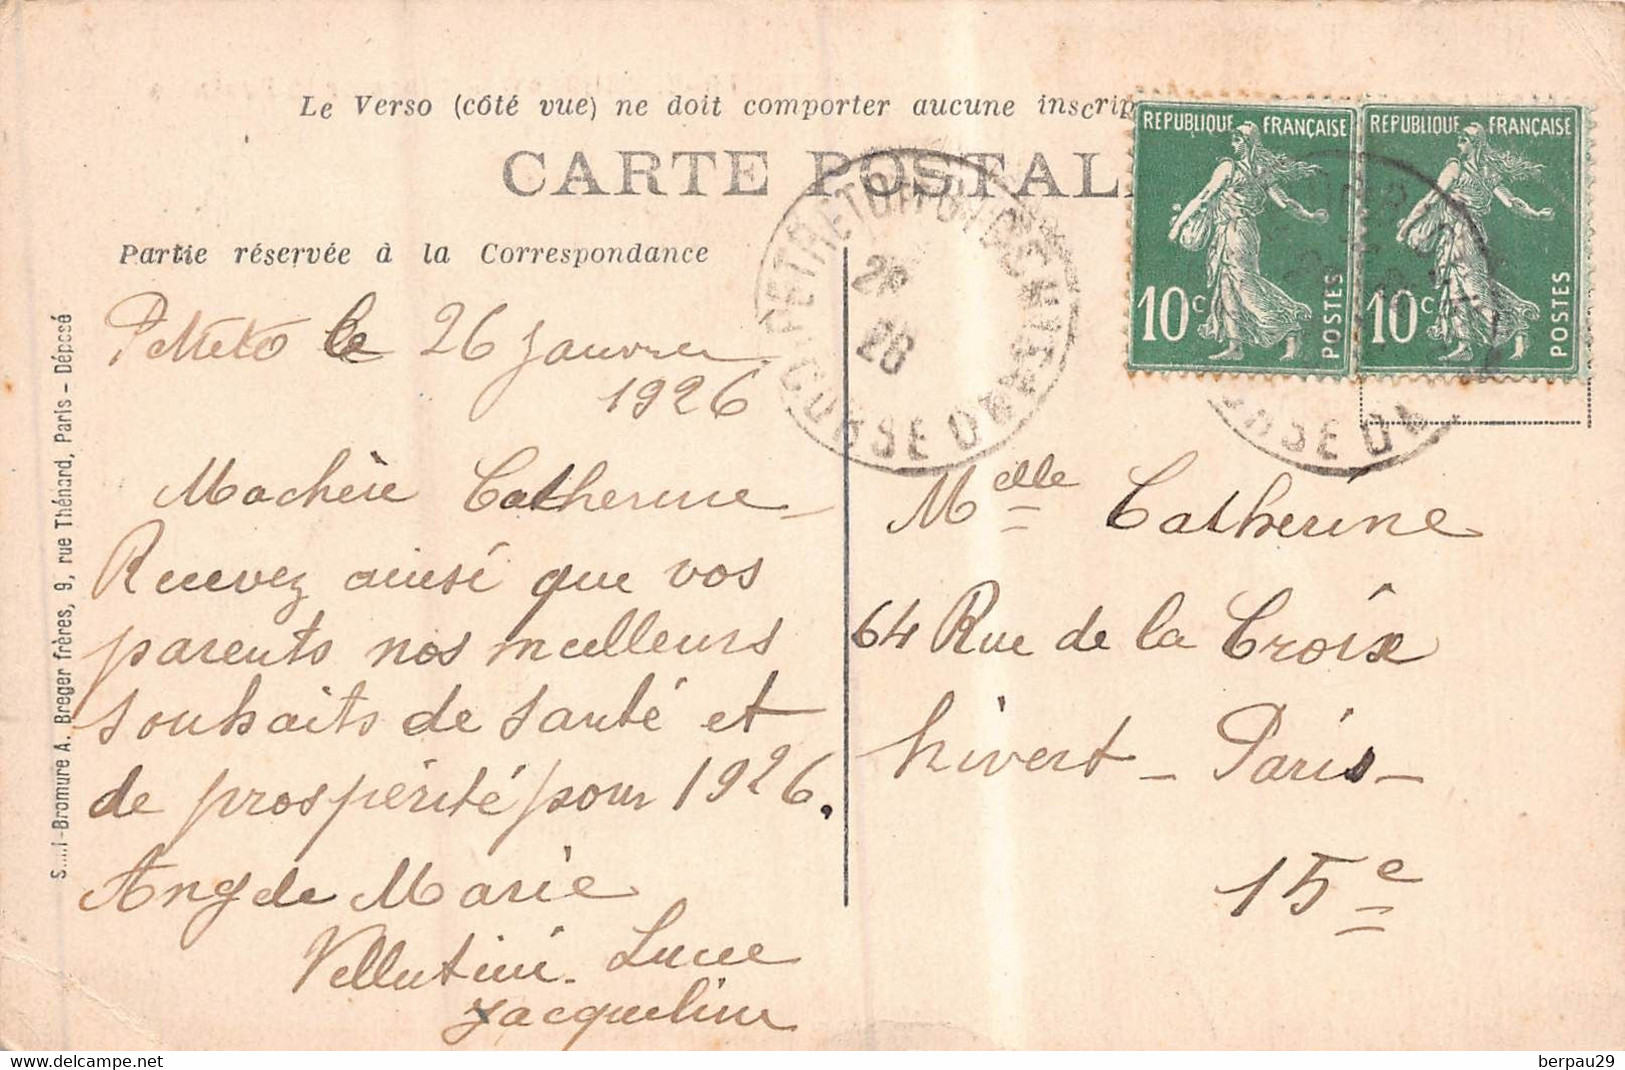 Le Verso (côté vue) ne doit comporter aucune inscrip
CARTE POSTAL
REPUBLIQUE FRANÇAISE
10c POSTES
REPUBLIQUE FRANÇAISE
10c POSTES
PETRETO
26
26
CORSE
Partie réservée à la Correspondance
le 26 Janvier
1926
Machère Catherine
Recevez ainsi que vos
parents nos meilleurs
souhaits de santé et
de prospérité pour 1926.
Angele Marie
Vellutini. Luce
Jacqueline
Melle Catherine
64 Rue de la Croix
hivert - Paris -
15e
S....I-Bromure A. Breger frères, 9, rue Thénard, Paris - Déposé
berpau29